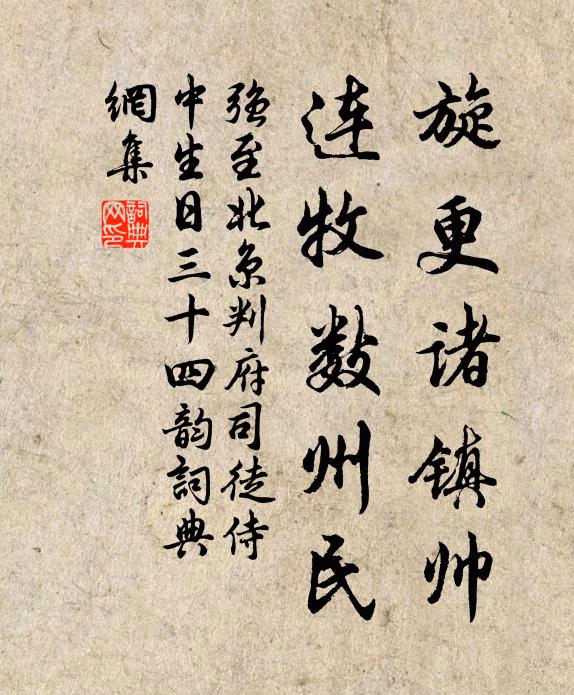 旋更诸镇帅
连牧数州民
强至北京判府司徒侍
中生日三十四韵詞典
網集
詞典网印